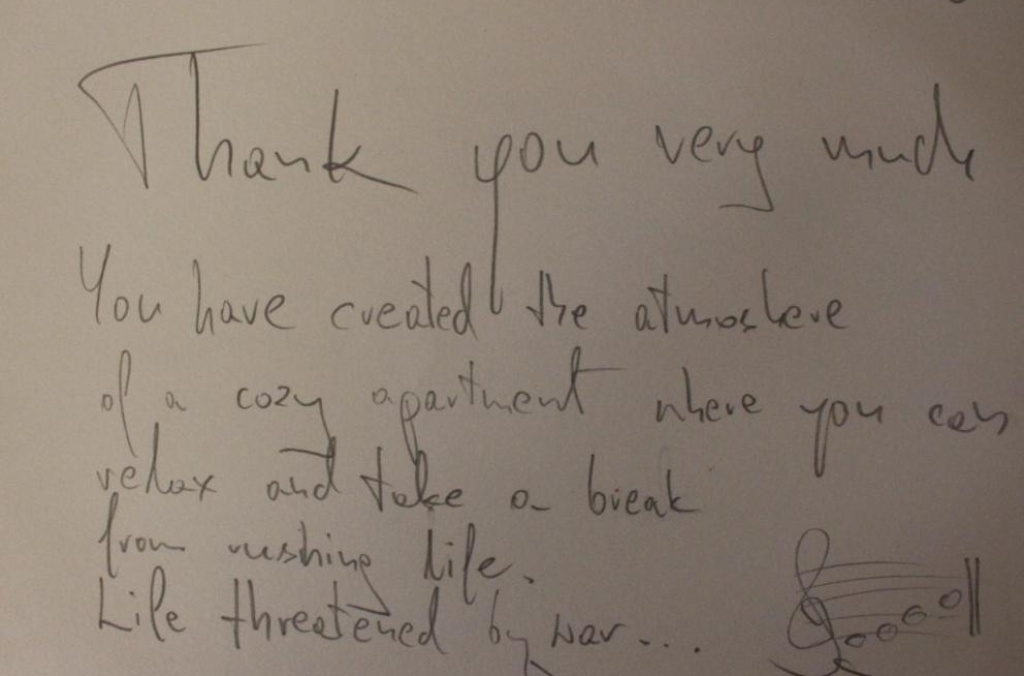 Thank you very much
You have created the atmoshere
of a cozy apartment where you can
relax and take a break
from rushing life.
Life threatened by war...